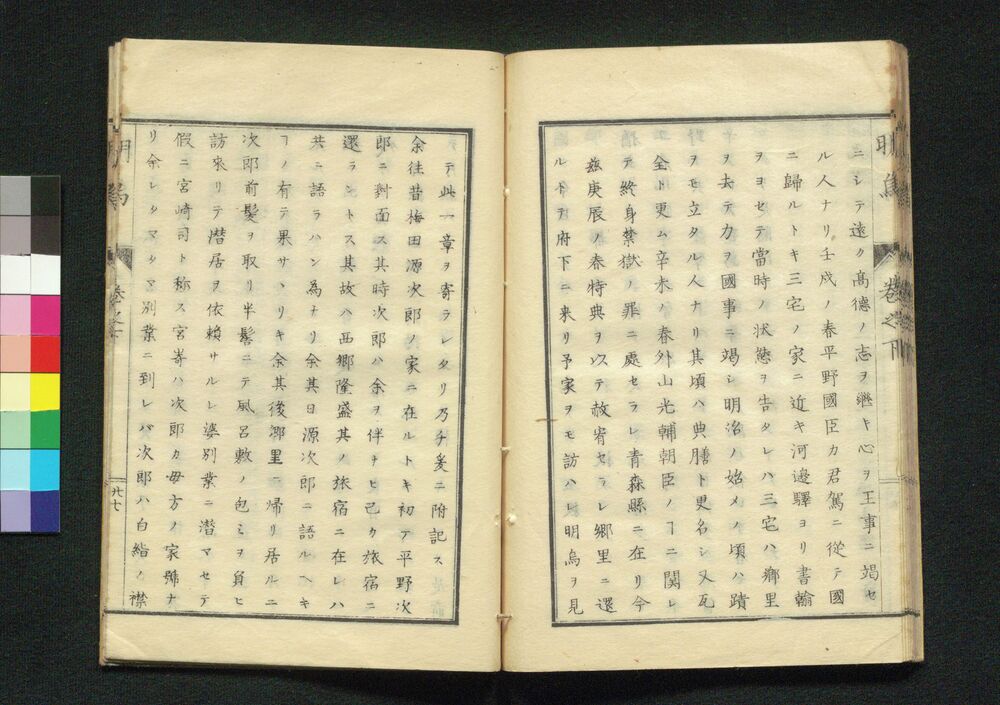 ニシテ遠ク高德ノ志ヲ継キ心ヲ王事ニ竭セ
ル人ナリ壬戌ノ春平野國臣カ君駕ニ從テ國
ニ歸ルトキ三宅ノ家ニ近キ河邊驛ヨリ書翰
ヲヨセテ當時ノ状態ヲ告タレハ三宅ハ郷里
ヲ去テ力ヲ國事ニ竭シ明治ノ始メノ頃ハ蹟
ヲモ立タル人ナリ其頃ハ典膳ト更名シ又瓦
全ト更ム辛未ノ春外山光輔朝臣ノヿニ関レ
テ終身禁獄ノ罪ニ處セラレ青森縣ニ在リ今
茲庚辰ノ春特典ヲ以テ赦宥セラレ郷里ニ還
ルトテ府下ニ来リ予家ヲモ訪ハレ明烏ヲ見
テ此一章ヲ寄ラレタリ乃チ爰ニ附記ス
余往昔梅田源次郎ノ家ニ在ルトキ初テ平野次
郎ニ對面ス其時次郎ハ余ヲ伴ナヒ己カ旅宿ニ
還ラントス其故ハ西郷隆盛其ノ旅宿ニ在レハ
共ニ語ラハン為ナリ余其日源次郎ニ語ルヘキ
ヿノ有テ果サヽリキ余其後郷里ニ帰リ居ルニ
次郎前髪ヲ取リ半髻ニテ風呂敷ノ包ミヲ負ヒ
訪來リテ潜居ヲ依頼サルレ婆別業ニ潜マセテ
假ニ宮崎司ト称ス宮嵜ハ次郎カ母方ノ家号ナ
リ余レタマタマ別業ニ到レバ次郎ハ白絹ノ襟
明烏
巻之下
廿七